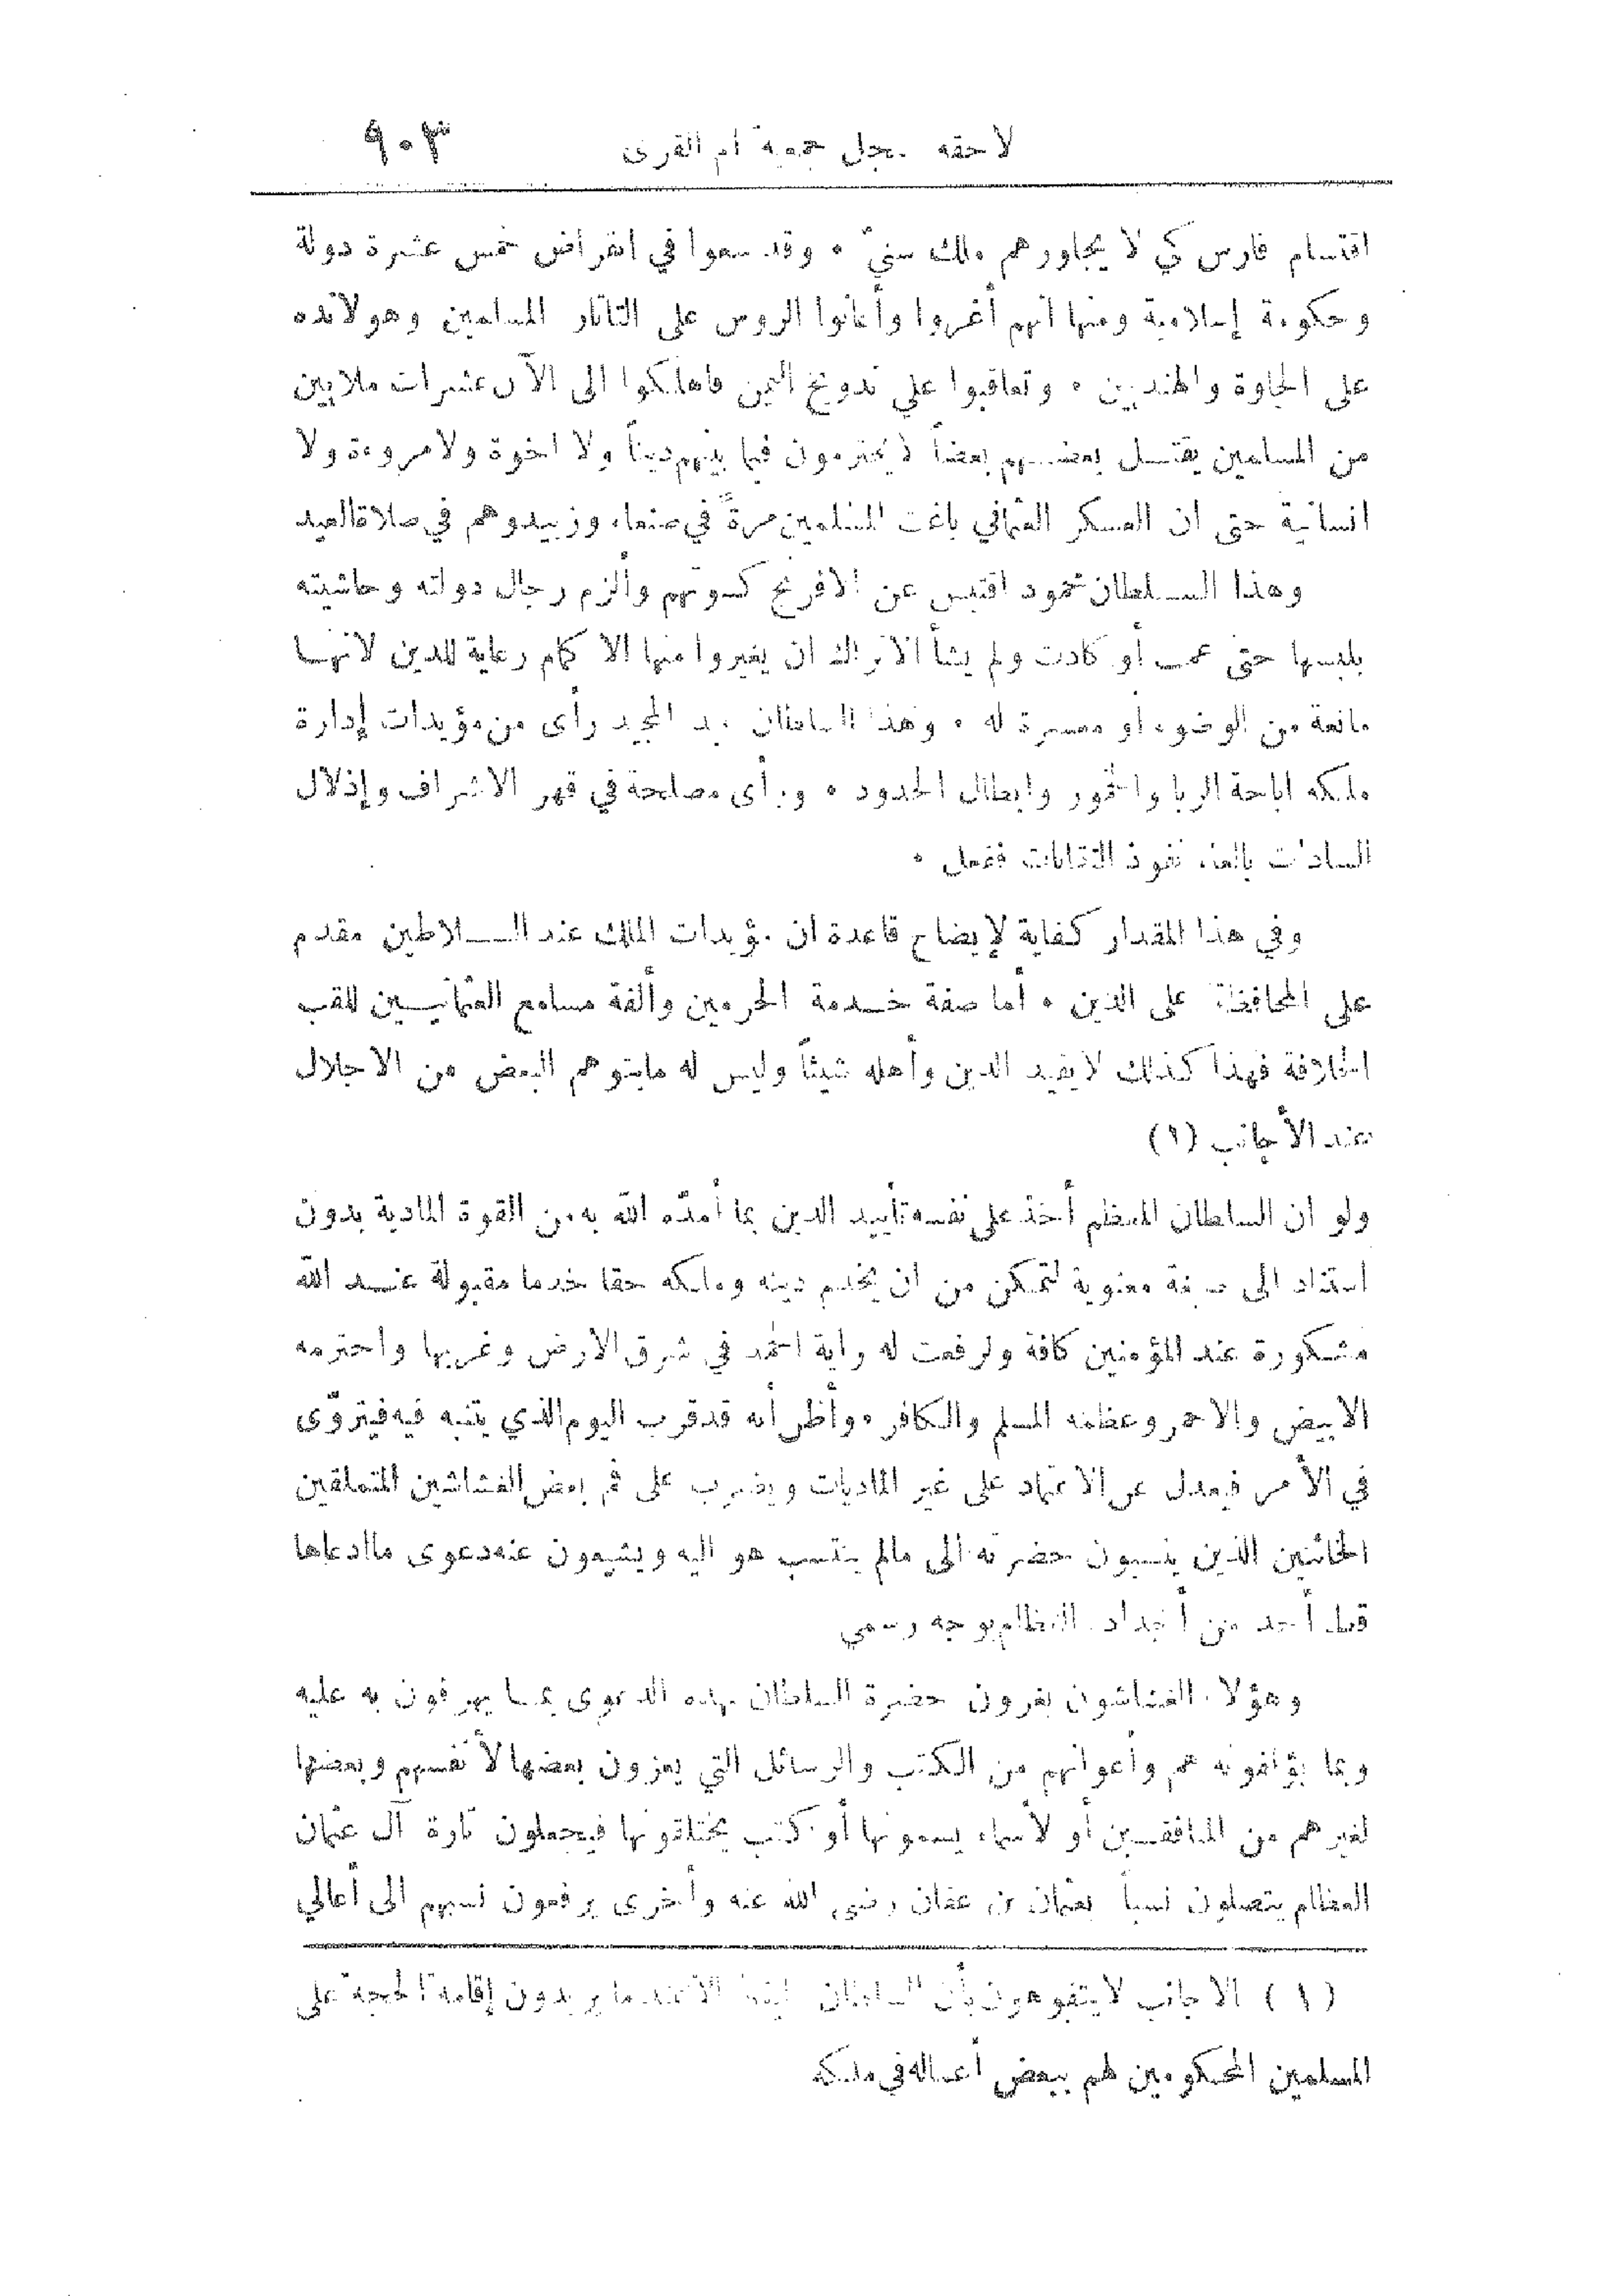 لاحقه سجل جمعية أم القرى ٩٠٣
اقتسام فارس كي لا يجاورهم ملك سنيّ ٠ وقد سعوا في انقراض خمس عشرة دولة
وحكومة إسلامية ومنها أنهم أغروا وأعانوا الروس على التاتار المسلمين وهولانده
على الجاوة والهنديين ٠ وتعاقبوا على تدويخ اليمن فاهلكوا الى الآن عشرات ملايين
من المسلمين يقتل بعضهم بعضاً لا يحترمون فيما بينهم ديناً ولا اخوة ولا مروءة ولا
انسانية حتى ان العسكر العثماني باغت المسلمين مرةً في صنعاء وزبيد وهم في صلاة العيد
وهذا السلطان محمود اقتبس عن الافرنج كسوتهم وألزم رجال دولته وحاشيته
بلبسها حتى عمت أو كادت ولم يشأ الاتراك ان يغيروا منها الاكمام رعاية للدين لانها
مانعة من الوضوء أو معسرة له ٠ وهذا السلطان عبد المجيد رأى من مؤيدات إدارة
ملكه اباحة الربا والخمور وابطال الحدود ٠ ورأى مصلحة في قهر الاشراف وإذلال
السادات بالغاء نفوذ النقابات ففعل ٠
وفي هذا المقدار كفاية لإيضاح قاعدة ان مؤيدات الملك عند السلاطين مقدم
على المحافظة على الدين ٠ أما صفة خدمة الحرمين وألفة مسامع العثمانيين للقب
الخلافة فهذا كذلك لا يفيد الدين وأهله شيئاً وليس له مايتوهم البعض من الاجلال
عند الأجانب (١)
ولو ان السلطان المعظم أخذ على نفسه تأييد الدين بما أمدّه الله به من القوة المادية بدون
استناد الى صبغة معنوية لتمكن من ان يخدم دينه وملكه حقا خدما مقبولة عند الله
مشكورة عند المؤمنين كافة ولرفعت له راية الحمد في شرق الارض وغربها واحترمه
الابيض والاحمر وعظمه المسلم والكافر ٠ وأظن أنه قد قرب اليوم الذي يتنبه فيه فيتروّى
في الأمر فيعدل عن الاعتماد على غير الماديات ويضرب على فم بعض الغشاشين المتملقين
الخائنين الذين ينسبون حضرته الى مالم ينتسب هو اليه ويشيعون عنه دعوى ماادعاها
قط أحد من أجداده العظام بوجه رسمي
وهؤلاء الغشاشون يغرون حضرة السلطان بهذه الدعوى بما يهرفون به عليه
وبما يؤلفونه هم وأعوانهم من الكتب والرسائل التي يعزون بعضها لأنفسهم وبعضها
لغيرهم من المنافقين أو لأسماء يسمونها أو كتب يختلقونها فيجعلون تارة آل عثمان
العظام يتصلون نسباً بعثمان بن عفان رضي الله عنه وأخرى يرفعون نسبهم الى أعالي
(١) الاجانب لا يتفوهون بأن السلطان خليفة الا عندما يريدون إقامة الحجة على
المسلمين المحكومين لهم ببعض أعماله في ملكه